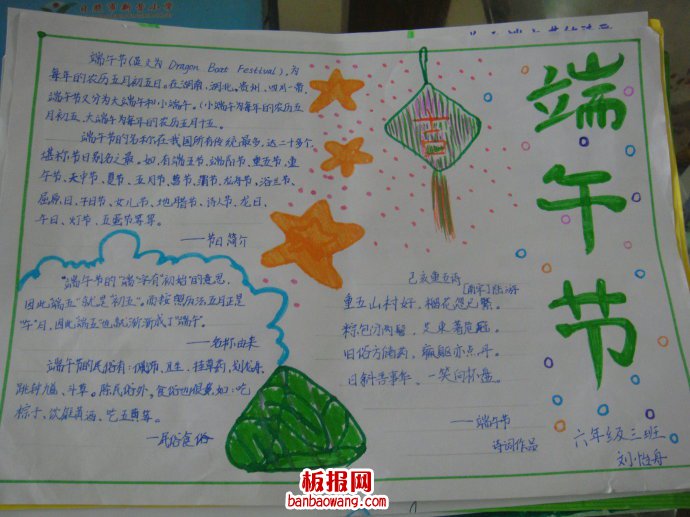 端午节(英文为 Dragon Boat Festival)，为
每年的农历五月初五日。在湖南、湖北、贵州、四川一带，
端午节又分为大端午和小端午。(小端午为每年的农历五
月初五，大端午为每年的农历五月十五。
端午节的名称在我国所有传统最多，达二十多个，
堪称节日别名之最。如，有端五节、端阳节、重五节、重
午节、天中节、夏节、五月节、菖节、蒲节、龙舟节、浴兰节、
屈原日、午日节、女儿节、地腊节、诗人节、龙日、
午日、灯节、五蛋节等等。
——节日简介
"端午节的"端"字有"初始"的意思，
因此"端五"就是"初五"。而按照历法五月正是
"午"月，因此"端五"也就渐渐成了"端午"。
——名称由来
端午节的民俗有：佩饰、卫生、挂草药、划龙舟、
跳钟馗、斗草。除民俗外，食俗也很兼如：吃
粽子、饮雄黄酒、吃五毒
——民俗食俗
己亥重五诗
[南宋]陆游
重五山村好，榴花忽已繁。
粽包分两髻，艾束著危冠。
旧俗方储药，羸躯亦点丹。
日斜吾事毕，一笑向杯盘。
——端午节
诗词作品
端午节
六年级三班
刘怡舟
板报网
banbaowang.com